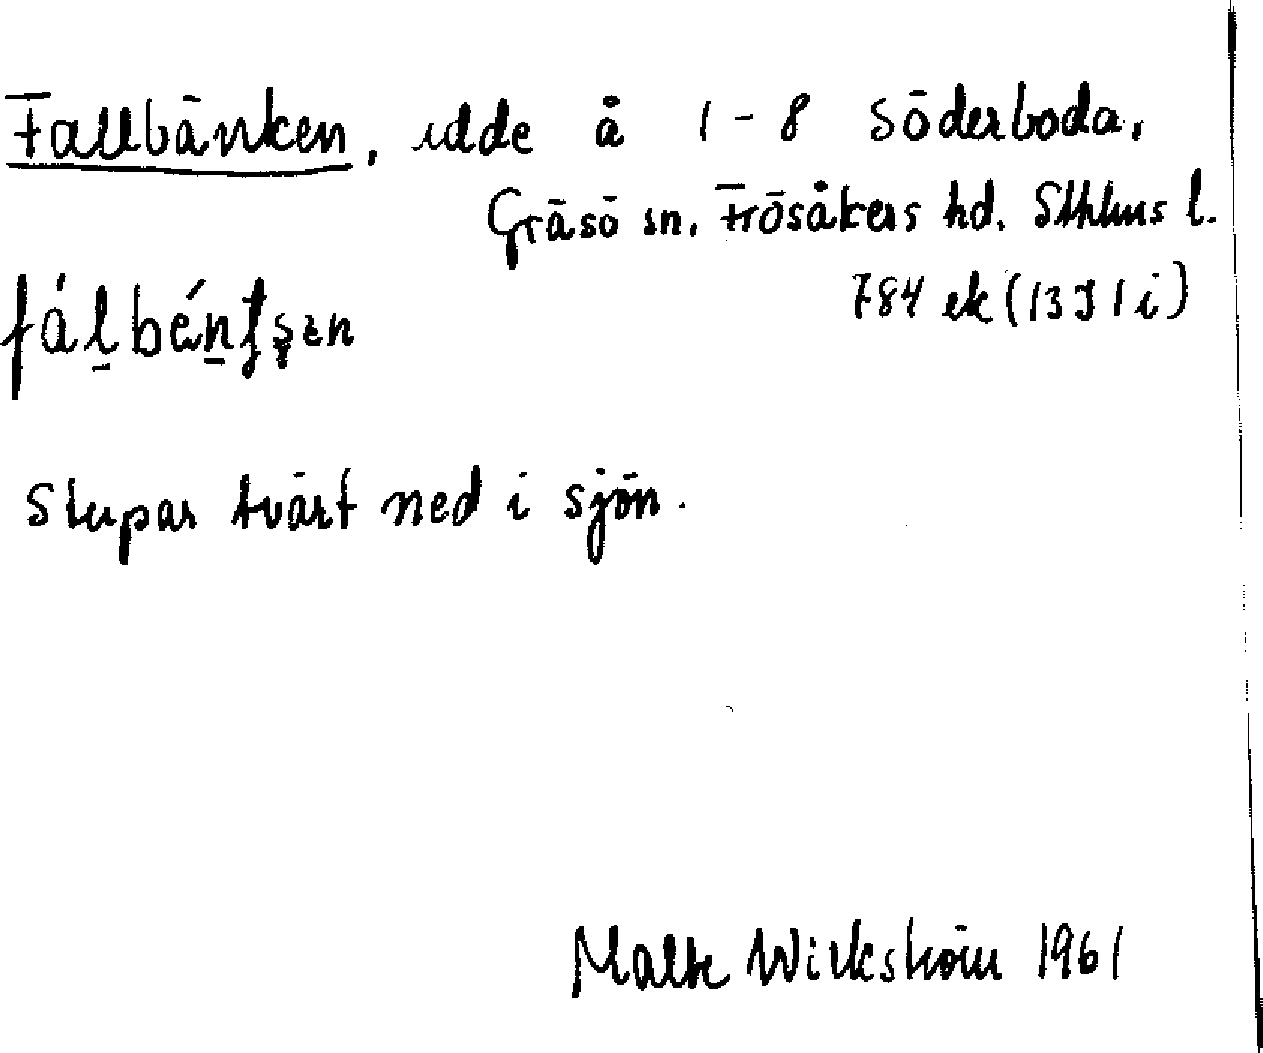 Fallbänken, udde å 1-8 Söderboda,
Gräsö sn. Frösåkers hd. Sthlms l.
784 ek (13 I 1 i)
Stupar tvärt ned i sjön.
Malte Wickström 1961